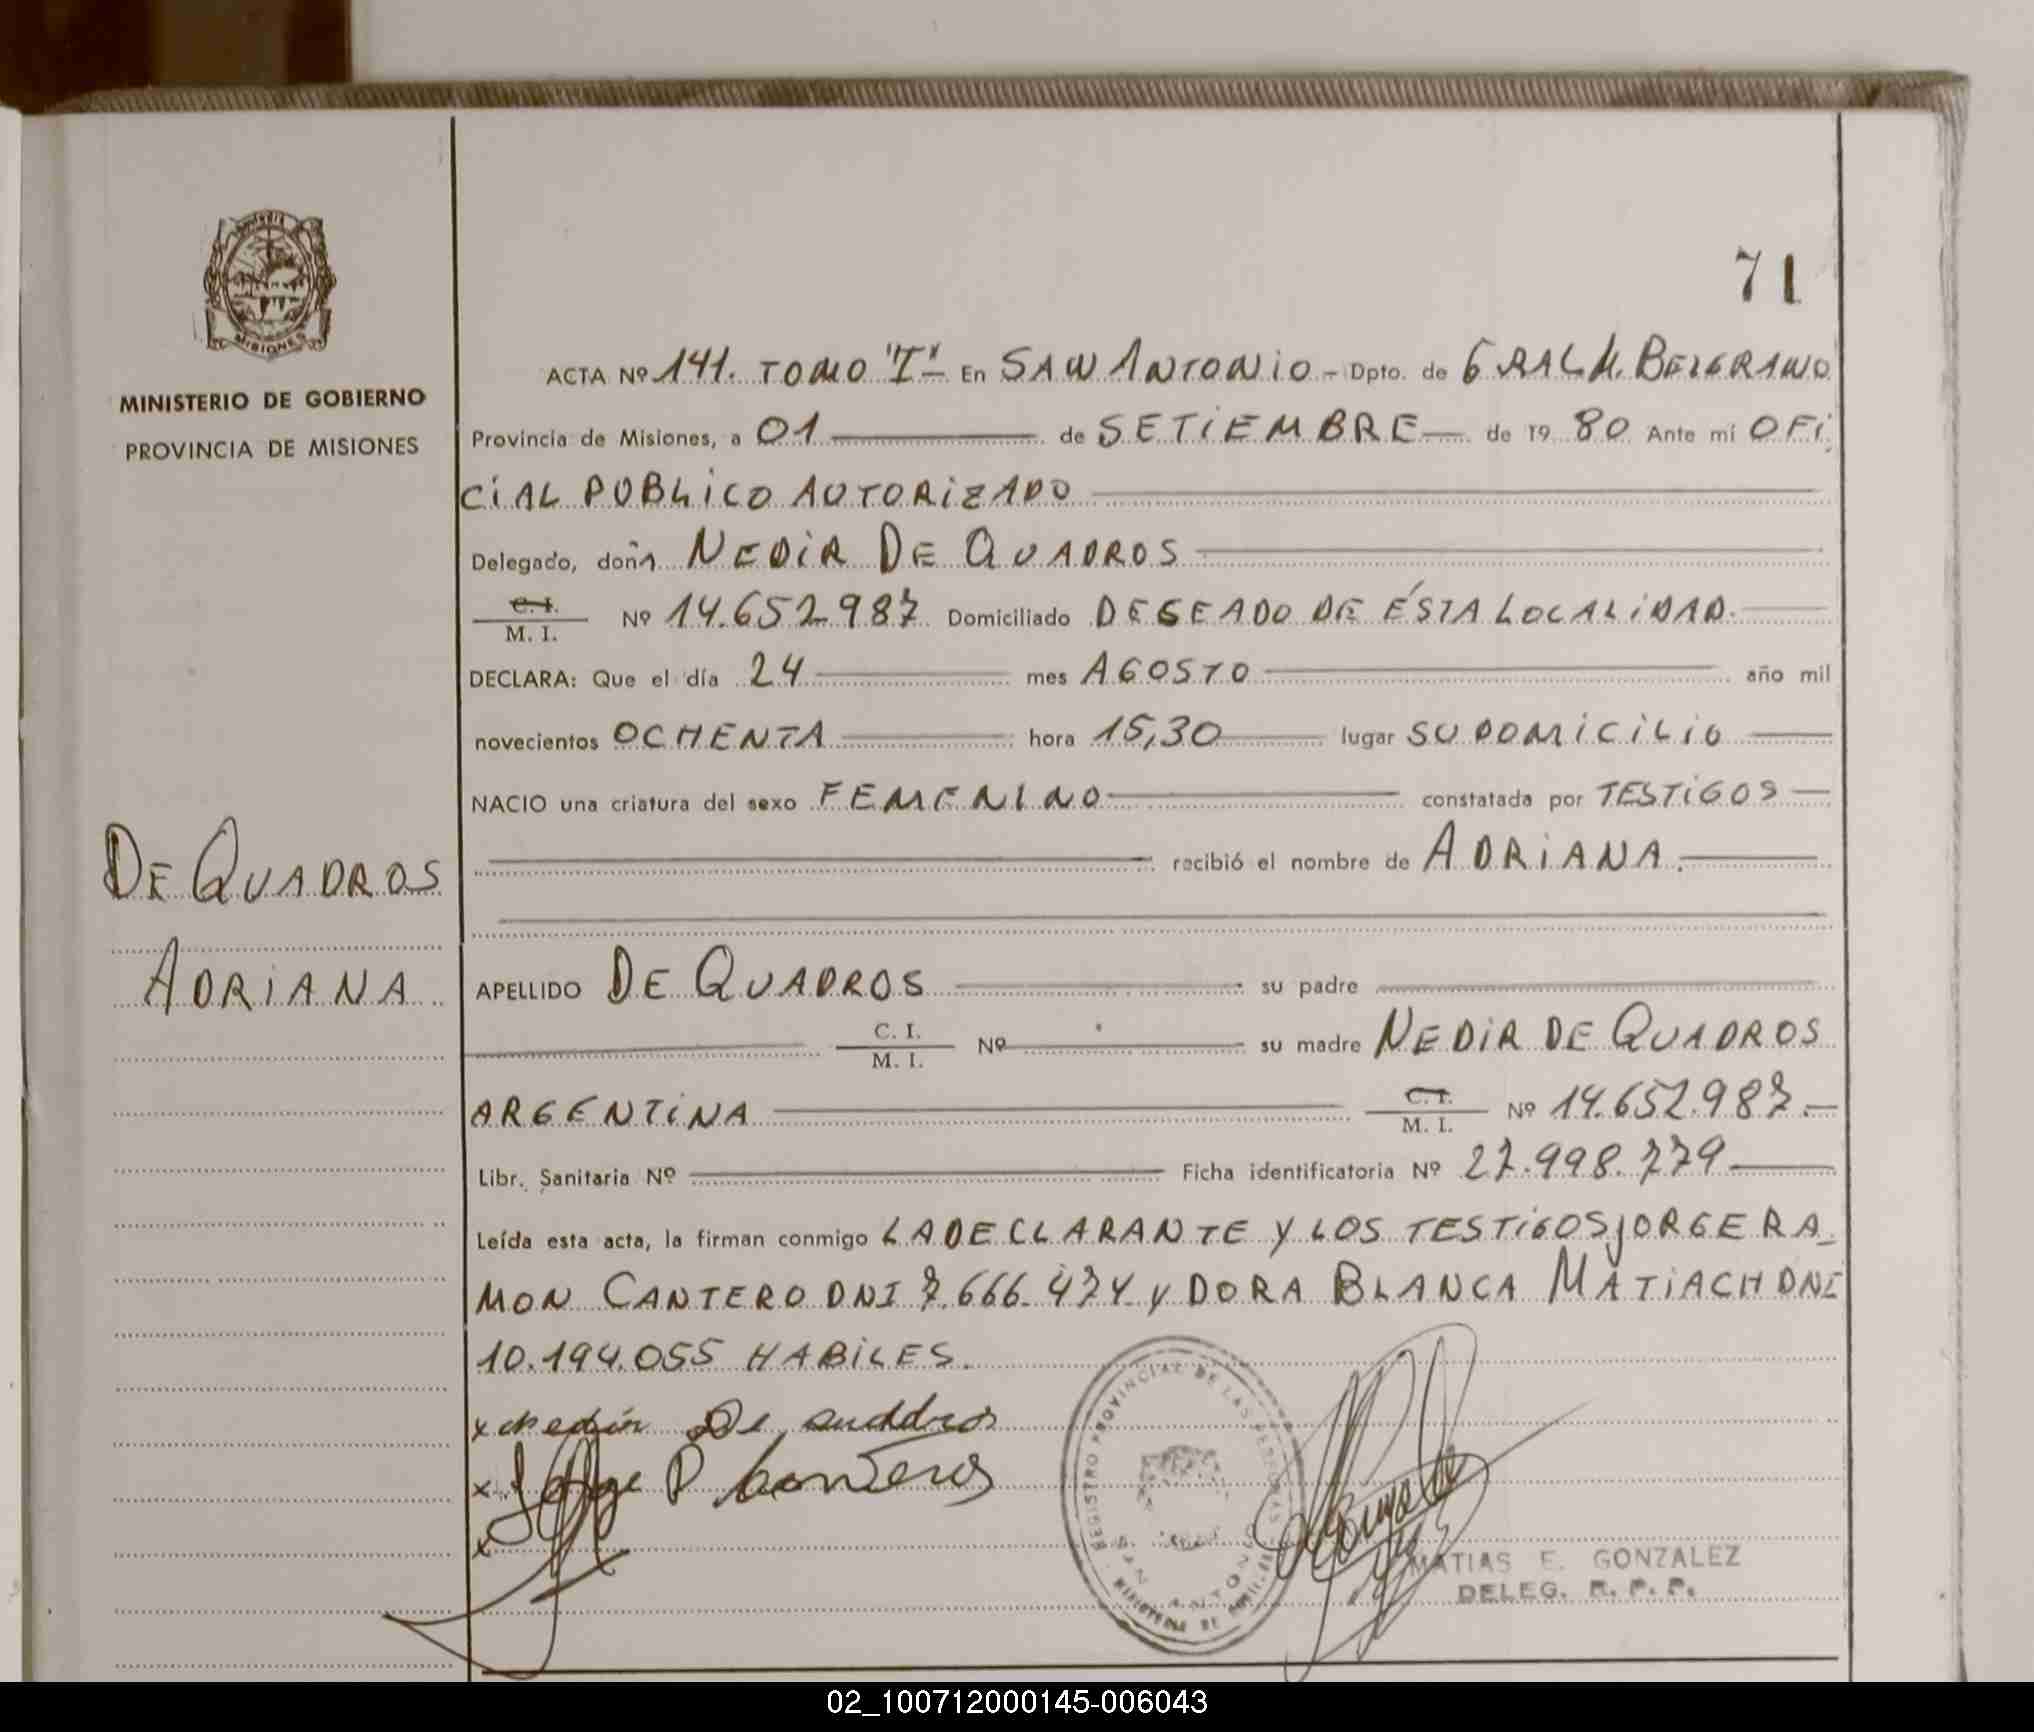 71
MISIONES
MINISTERIO DE GOBIERNO
PROVINCIA DE MISIONES
DE QUADROS
ADRIANA
ACTA Nº 141. TOMO "I" En SAN ANTONIO - Dpto. de GRAL M. BELGRANO
Provincia de Misiones, a 01 de SETIEMBRE de 19 80 Ante mi OFI
CIAL PUBLICO AUTORIZADO
Delegado, doña NEDIR DE QUADROS
C. I. / M. I. Nº 14.652.987 Domiciliado DESEADO DE ÉSTA LOCALIDAD.
DECLARA: Que el día 24 mes AGOSTO año mil
novecientos OCHENTA hora 15,30 lugar SU DOMICILIO
NACIO una criatura del sexo FEMENINO constatada por TESTIGOS
recibió el nombre de ADRIANA.
APELLIDO DE QUADROS su padre
C. I. / M. I. Nº su madre NEDIR DE QUADROS
ARGENTINA C. I. / M. I. Nº 14.652.987.
Libr. Sanitaria Nº Ficha identificatoria Nº 27.998.779
Leída esta acta, la firman conmigo LA DECLARANTE Y LOS TESTIGOS JORGE RA_
MON CANTERO DNI 7.666.474 y DORA BLANCA MATIACH DNI
10.194.055 HABILES.
x Nedir De Quadros
x Jorge R Canteros
x
REGISTRO PROVINCIAL DE LAS PERSONAS
SAN ANTONIO
MINISTERIO DE
MATIAS E. GONZALEZ
DELEG. R. P. P.
02_100712000145-006043